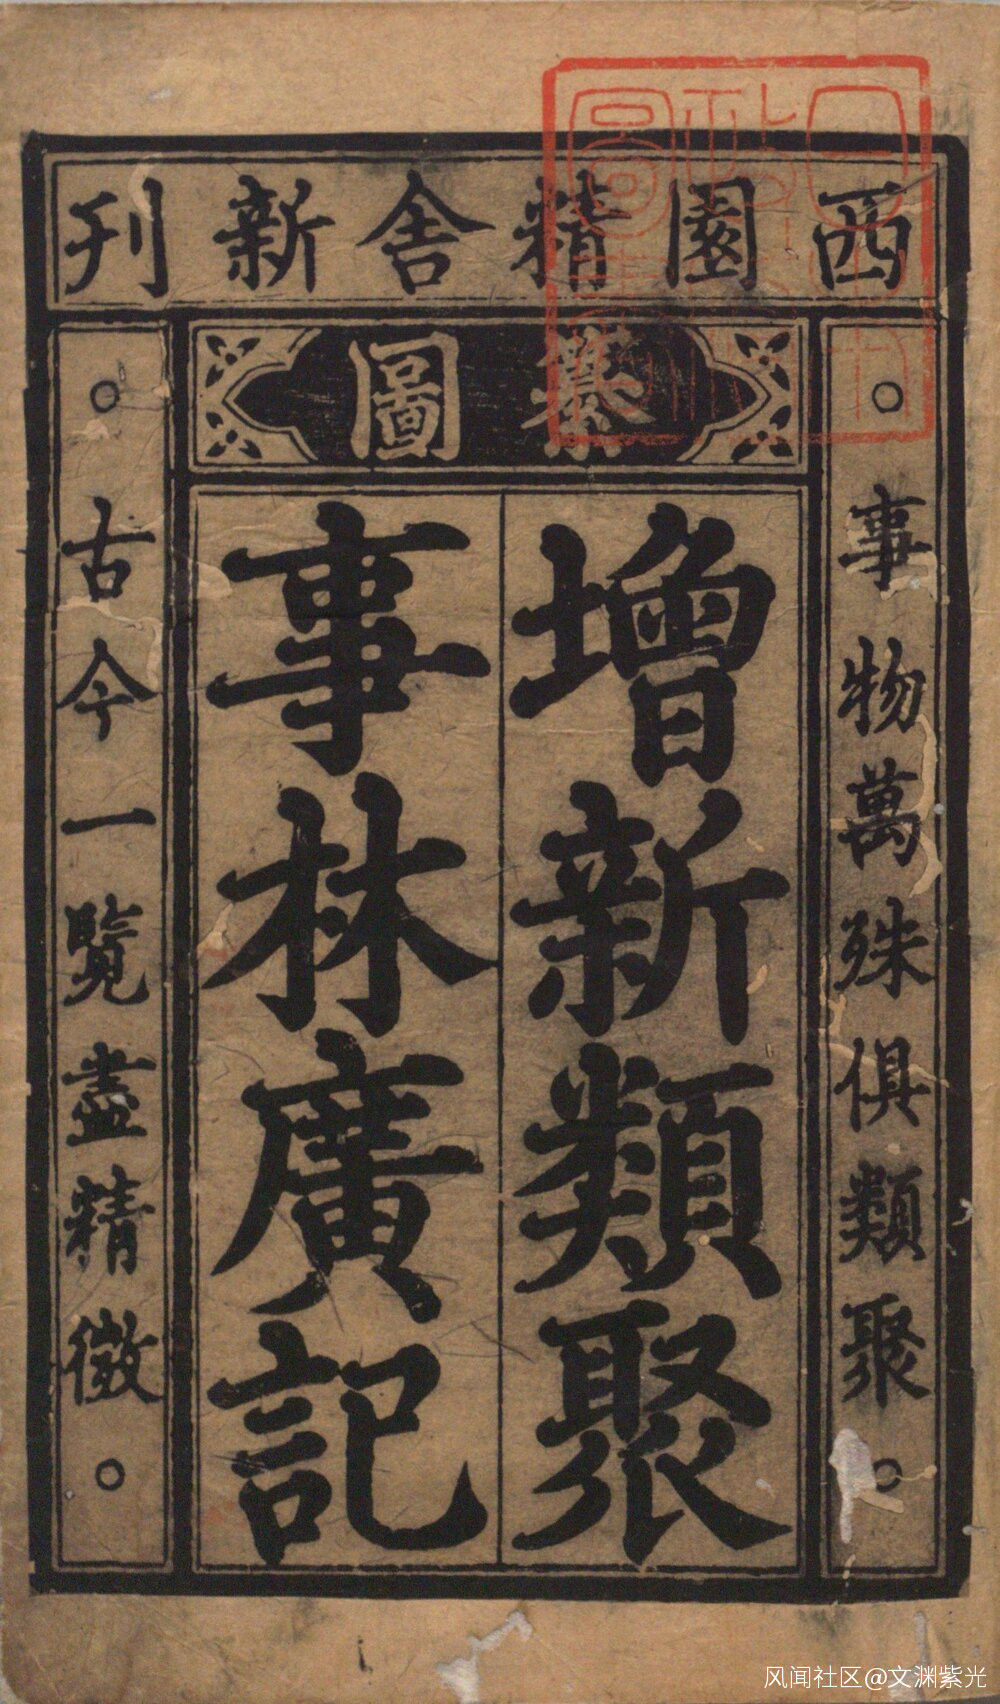 西園精舍新刊
纂圖
○事物萬殊俱類聚○
增新類聚
事林廣記
○古今一覽盡精微○
风闻社区@文渊紫光